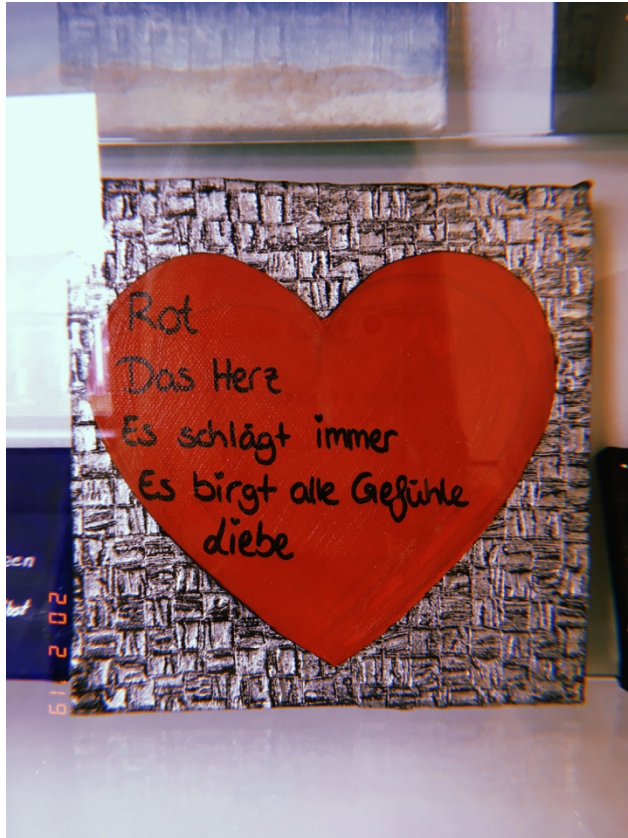 Rot
Das Herz
Es schlägt immer
Es birgt alle Gefühle
Liebe
20 2 '19